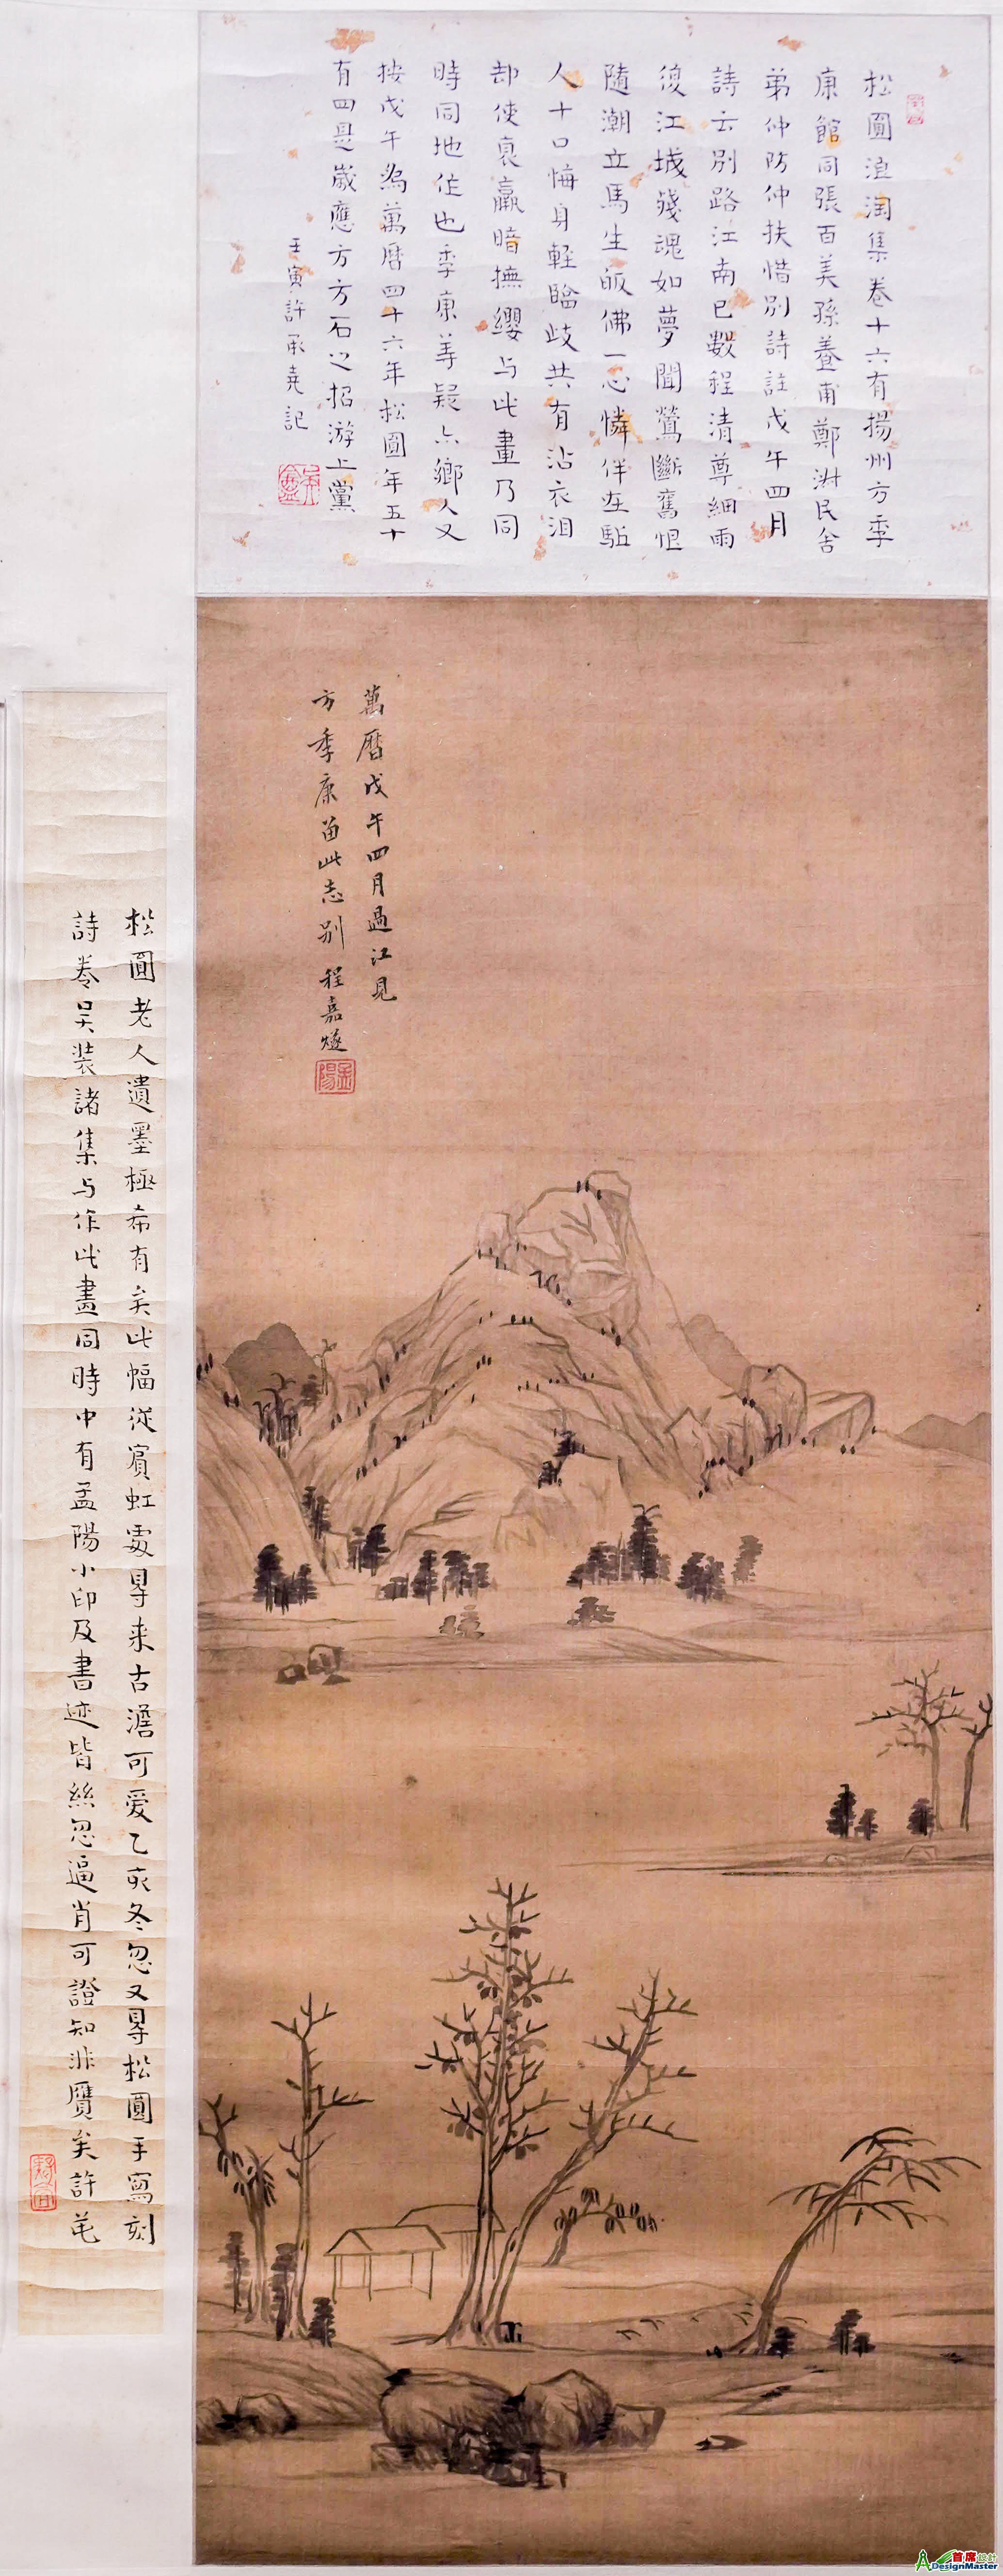 松圓浪淘集卷十六有揚州方季
康館同張百美孫養甫鄭洲民舍
弟仲防仲扶惜別詩註戊午四月
詩云別路江南已數程清尊細雨
後江城殘魂如夢聞鶯斷舊恨
隨潮立馬生皈佛一心憐伴在駈
人十口悔身輕臨歧共有沾衣泪
却使衰羸暗撫纓与此畫乃同
時同地作也季康等疑亦鄉人又
按戊午為萬曆四十六年松圓年五十
有四是歲應方方石之招游上黨
壬寅許承堯記
萬曆戊午四月過江見
方季康留此志別 程嘉燧
孟陽
松圓老人遺墨極希有矣此幅從賓虹處得来古澹可爱乙亥冬忽又得松圓手寫刻
詩卷吴装諸集与作此畫同時中有孟陽小印及書迹皆絲忽逼肖可證知非贋矣許芚
首席設計
ADesignMaster